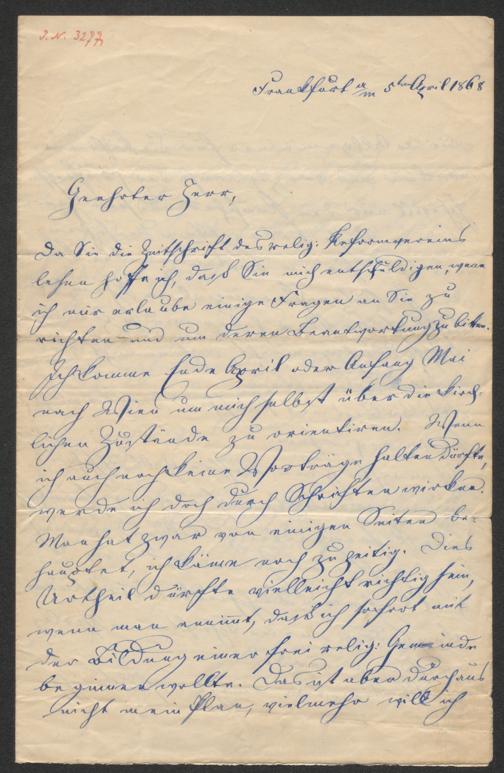 J. N. 3277
Frankfurt a/m 5ten April 1868
Geehrter Herr,
Da Sie die Zeitschrift des relig: Reformvereins
lesen hoffe ich, dass Sie mich entschuldigen, wenn
ich mir erlaube einige Fragen an Sie zu
richten und um deren Beantwortung zu bitten.
Ich komme Ende April oder Anfang Mai
nach Wien um mich selbst über die kirch-
lichen Zustände zu orientiren. Wenn
ich auch noch keine Vorträge halten dürfte,
werde ich doch durch Schriften wirken.
Man hat zwar von einigen Seiten be-
hauptet, ich käme noch zu zeitig. Dies
Urtheil dürfte vielleicht richtig sein,
wenn man annimmt, dass ich sofort mit
der Bildung einer frei relig: Gemeinde
beginnen wollte. Das ist aber durchaus
nicht mein Plan, vielmehr will ich